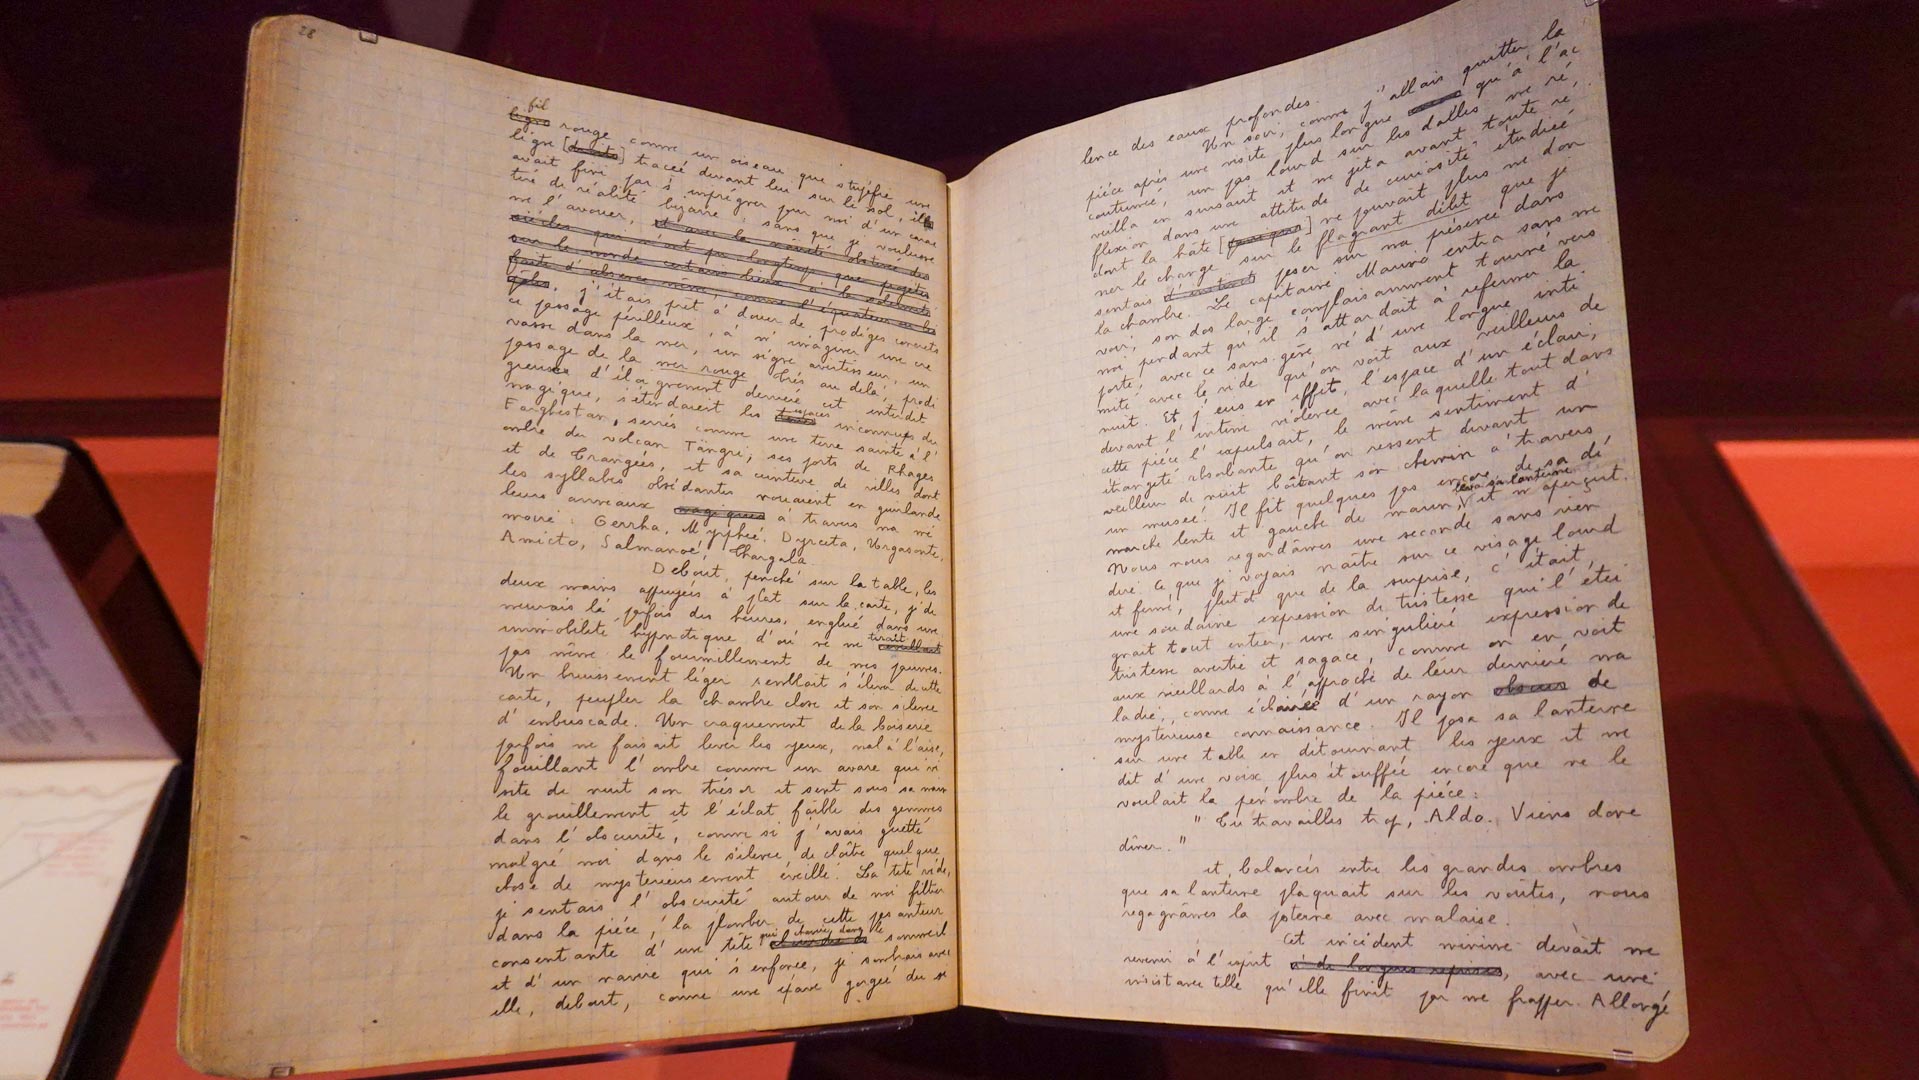 28
fil
~~ligne~~ rouge comme un oiseau que stupéfie une
ligne [~~droite~~] tracée devant lui sur le sol, il
avait fini par s'imprégner pour moi d'un carac
tère de réalité bizarre : sans que je voulusse
me l'avouer,
j'étais prêt à douer de prodiges concrets
ce passage périlleux, à m'imaginer une cre
vasse dans la mer, un signe avertisseur, un
passage de la mer rouge. Très au delà, prodi
gieux d'éloignement derrière cet interdit
magique, s'étendaient les espaces inconnus du
Farghestan, serrés comme une terre sainte à l'
ombre du volcan Tängri, ses ports de Rhages
et de Trangées, et sa ceinture de villes dont
les syllabes obsédantes nouaient en guirlande
leurs anneaux ~~magiques~~ à travers ma mé
moire : Gerrha, Myrphée, Dyrceta, Urgasonte,
Amicto, Salmanoé, Thargala.
Debout, penché sur la table, les
deux mains appuyées à plat sur la carte, j'de
meurais là parfois des heures, englué dans une
immobilité hypnotique d'où ne me tirait
pas même le fourmillement de mes paumes.
Un bruissement léger semblait s'élever de cette
carte, peupler la chambre close et son silence
d'embuscade. Un craquement de la boiserie
parfois me faisait lever les yeux, mal à l'aise,
fouillant l'ombre comme un avare qui vi
site de nuit son trésor et sent sous sa main
le grouillement et l'éclat faible des gemmes
dans l'obscurité, comme si j'avais guetté
malgré moi dans le silence de cloître quelque
chose de mystérieusement éveillé. La tête vide,
je sentais l'obscurité autour de moi filtrer
dans la pièce, la plomber de cette pesanteur
consentante d'une tête qui chavire dans le sommeil
et d'un navire qui s'enfonce, je sombrais avec
elle, debout, comme une épave gorgée du si
lence des eaux profondes.
Un soir, comme j'allais quitter la
pièce après une visite plus longue qu'à l'ac
coutumée, un pas lourd sur les dalles me ré
veilla en sursaut et me jeta avant toute ré
flexion dans une attitude de curiosité étudiée
dont la hâte ne pouvait plus me don
ner le change sur le flagrant délit que je
sentais ~~d'instinct~~ peser sur ma présence dans
la chambre. Le capitaine Marino entra sans me
voir, son dos large complaisamment tourné vers
moi pendant qu'il s'attardait à refermer la
porte, avec ce sans-gêne né d'une longue inti
mité avec le vide qu'on voit aux veilleurs de
nuit. Et j'eus en effet, l'espace d'un éclair,
devant l'intime violence avec laquelle tout dans
cette pièce l'expulsait, le même sentiment d'
étrangeté absorbante qu'on ressent devant un
veilleur de nuit boitant son chemin à travers
un musée. Il fit quelques pas encore, de sa dé
marche lente et gauche de marin, leva sa lanterne et m'aperçut.
Nous nous regardâmes une seconde sans rien
dire. Ce que je voyais naître sur ce visage lourd
et fermé, plutôt que de la surprise, c'était,
une soudaine expression de tristesse qui l'étei
gnait tout entier, une singulière expression de
tristesse avertie et sagace, comme on en voit
aux vieillards à l'approche de leur dernière ma
ladie, comme éclairée d'un rayon ~~obscur~~ de
mystérieuse connaissance. Il posa sa lanterne
sur une table en détournant les yeux et me
dit d'une voix plus étouffée encore que ne le
voulait la pénombre de la pièce :
" Tu travailles trop, Aldo. Viens donc
dîner. "
et, balancés entre les grandes ombres
que sa lanterne plaquait sur les voûtes, nous
regagnâmes la poterne avec malaise.
Cet incident minime devait me
revenir à l'esprit ~~à de longues reprises~~, avec une
insistance telle qu'elle finit par me frapper. Allongé